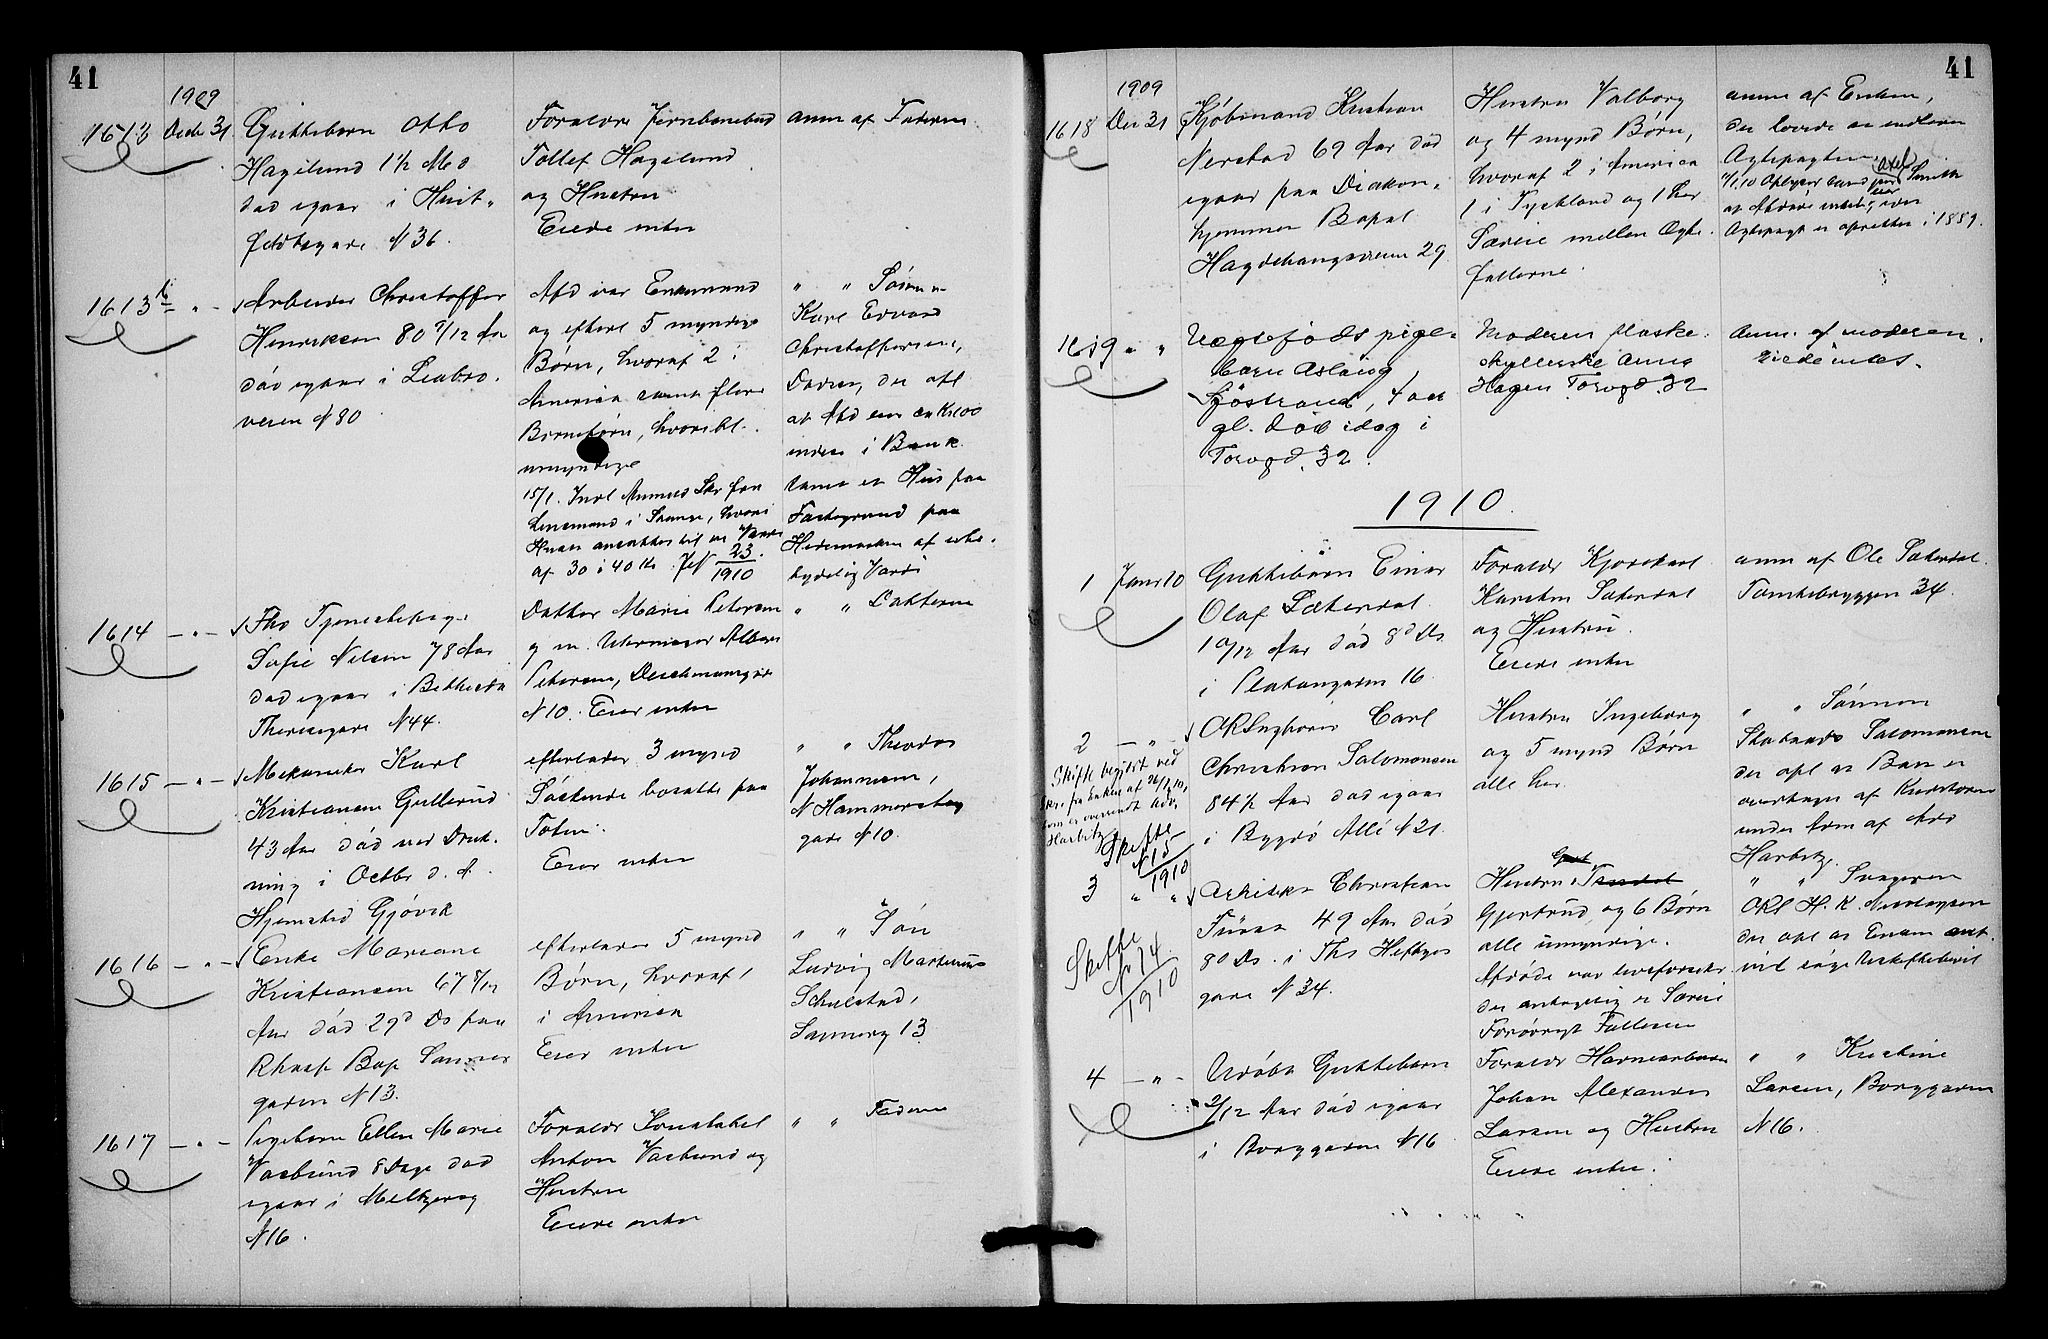 41
1909
1613 Decbr 31 Guttebarn Otto
Hagelund 1½ Md
død igaar i Hvit-
feldtsgade N 36.
Forældre Jernbanebud
Tollef Hagelund
og Hustru
Eiede intet
anm af Faderen
1613 b - " - Arbeider Christoffer
Henriksen 80 7/12 Aar
død igaar i Leabro-
veien N 80
Afd var Enkemand
og efterl 5 myndige
Børn, hvoraf 2 i
America samt flere
Børnebørn, hvoribl.
umyndige
15/1. Indl Skr fra
Lensmand i Stange, hvori
Huset ansættes til en Værdi
af 30 à 40 Kr. JN 23/1910
" " Sønnen
Karl Edvard
Christoffersen,
der opl
at Afd eier ca Kr 100
indest i Bank
samt et Hus paa
Fæstegrund paa
Hedemarken af ube-
tydelig Værdi
1614 - " - Fhv Tjenestepige
Sofie Nilsen 78 Aar
død igaar i Bethesda
Theresegade N 44.
Datter Marie Petersen
g m. Albert
Petersen, Deichmansgade
N 10. Eier intet
" " Datteren
1615 - " - Mekaniker Karl
Kristiansen Gullerud
43 Aar død ved Druk-
ning i Octbr d. A.
Hjemsted Gjøvik
efterlader 3 mynd
Søskende bosatte paa
Toten.
Eier intet
" " Theodor
Johannesen,
N Hammersborg
gade N 10.
1616 - " - Enke Mariane
Kristiansen 67 8/12
Aar død 29d Ds paa
Rhosp Bop Sanner
gaden N 13.
efterlader 5 mynd
Børn, hvoraf 1
i America
Eier intet
" " Søn
Ludvig Martinius
Schulstad,
Sannerg 13
1617 - " - Pigebarn Ellen Marie
Vaclund 8 Dage død
igaar i Meltzersg
N 16.
Forældr Konstabel
Anton Vaclund og
Hustru
Eiede intet
" " Faderen
41
1909
1618 Des 31 Kjøbmand Kristian
Nerstad 69 Aar død
igaar paa Diakon-
hjemmet Bopæl
Hagdehaugsveien 29
Hustru Valborg
og 4 mynd Børn,
hvoraf 2 i America
1 i Tyskland og 1 her
Særeie mellem Ægte-
fællerne.
anm af Enken,
der lovede at indlevere
Ægtepagten.
11/1.10 Oplyser Axel Smith
at Afdøde intet eier
Ægtepagt er oprettet i 1889.
1619 " " Uægtefødt pige-
barn Aslaug
Sjöstrand, 4 aar
gl. Död idag i
Torvgd. 32.
Moderen flaske-
skyllerske Anna
Hagen Torvgd. 32
Anm. af moderen.
Eiede intet.
1910
1 Janr 10 Guttebarn Einar
Olaf Sæterdal
10/12 Aar død 8d Ds
i Platousgaden 16
Forældr Kjørekarl
Karsten Sæterdal
og Hustru.
Eiede intet
anm af Ole Sæterdal
Tomtebryggen 34.
2 - " - ORSagfører Carl
Christian Salomonsen
84½ Aar død igaar
i Bygdø Allé N 21
Hustru Ingeborg
og 5 mynd Børn
alle her.
" " Sønnen
Salomonsen
der opl at Boet er
overtaget af Kreditorerne
under Adm af Adv
Harbitz.
Skifte begjært ved
Skr. fra Enken af 26/1.10,
som er oversendt Adv.
Harbitz
Skifte
N 15/1910
3 " " Arkitekt Christian
Fürst 49 Aar død
8d Ds. i Ths Heftyes
gade N 34.
Skifte
No 14/1910
Hustru
Gjertrud og 6 Børn
alle umyndige.
Afdøde var livsforsikr
der antagelig er Særeie
Forøvrigt Fælleseie
" " Svogeren
ORS H. K. Nicolaysen
der opl at Enken ant.
vil søge Uskiftebevil
4 - " - Udøbt Guttebarn
2/12 Aar død igaar
i Borggaden N 16
Forældr Havnearbeider
Johan Alexander
Larsen og Hustru
Eiede intet.
" " Kristine
Larsen, Borggaden
N 16.